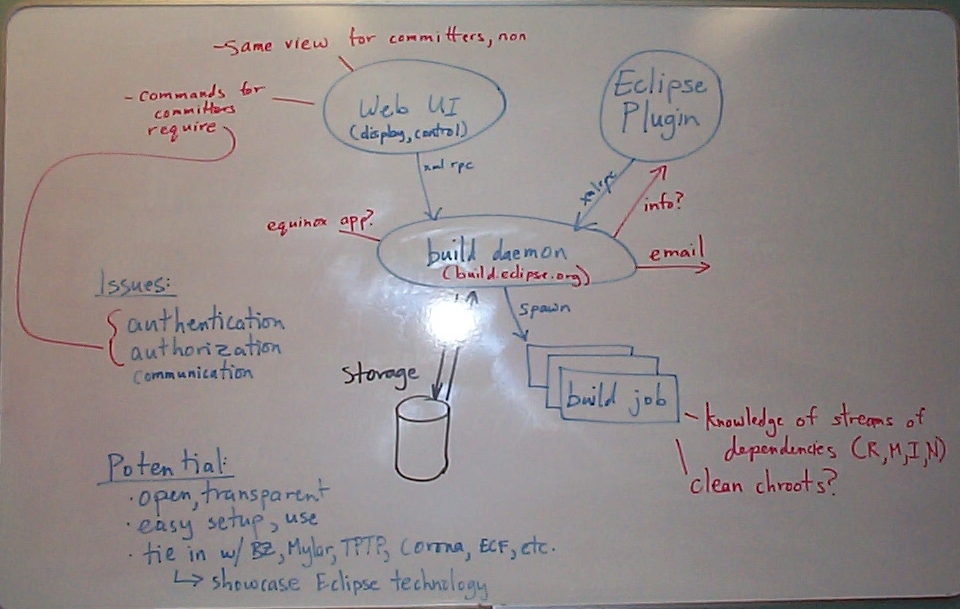 -same view for committers, non
- commands for
committers
require
Web UI
(display, control)
Eclipse
Plugin
xml rpc
xmlrpc
info?
equinox app?
build daemon
(build.eclipse.org)
email
spawn
Issues:
authentication
authorization
communication
storage
build job
- knowledge of streams of
dependencies (R,M,I,N)
clean chroots?
Potential:
· open, transparent
· easy setup, use
· tie in w/ BZ, Mylar, TPTP, Corona, ECF, etc.
↳ showcase Eclipse technology